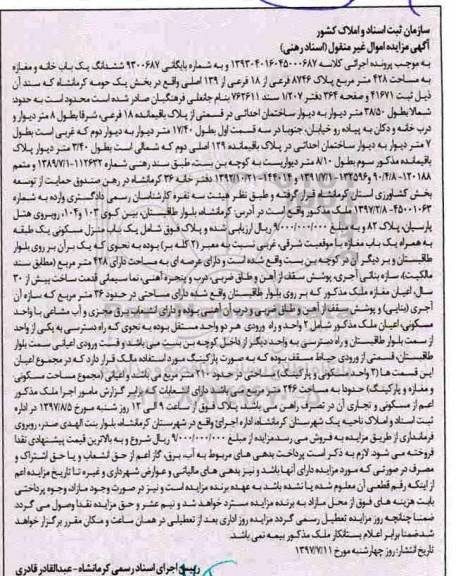 سازمان ثبت اسناد و املاک کشور
آگهی مزایده اموال غیر منقول (اسناد رهنی)
به موجب پرونده اجرائی کلاسه ۱۳۹۳۰۴۰۱۶۰۴۵۰۰۰۶۸۷ و به شماره بایگانی ۹۳۰۰۶۸۷ ششدانگ یک باب خانه و مغازه
به مساحت ۴۲۸ متر مربع پلاک ۸۷۴۶ فرعی از ۱۸ فرعی از ۱۳۹ اصلی واقع در بخش یک حومه کرمانشاه که سند آن
ذیل ثبت ۴۱۶۷۱ و صفحه ۳۶۴ دفتر ۱/۲۰۷ سند ۷۶۲۶۱۱ بنام جانعلی فرهنگیان صادر شده است محدود است به حدود:
شمالا بطول ۳۸/۵۰ متر دیوار به دیوار ساختمان احداثی در قسمتی از پلاک باقیمانده ۱۸ فرعی، شرقا بطول ۸ متر دیوار و
درب خانه و دکان به پیاده رو خیابان، جنوبا در سه قسمت اول بطول ۱۷/۴۰ متر دیوار به دیوار دوم که غربی است بطول
۷ متر دیوار به دیوار ساختمان احداثی در پلاک باقیمانده ۱۳۹ اصلی دوم که شمالی است بطول ۳/۴۰ متر دیوار پلاک
باقیمانده مذکور سوم بطول ۸/۱۰ متر دیواریست به کوچه بن بست، طبق سند رهنی شماره ۱۱۲۶۳۲-۱۳۸۹/۷/۱۰ و متمم
۱۲۰۱۸۸-۹۰/۴/۸ ۱۳۲۵۹۶-۱۳۹۱/۷/۱ و ۱۴۴۰۱۴-۱۳۹۲/۱۰/۲۱ دفتر خانه ۲۶ کرمانشاه در رهن صندوق حمایت از توسعه
بخش کشاورزی استان کرمانشاه قرار گرفته و طبق نظر هیئت سه نفره کارشناسان رسمی دادگستری وارده به شماره
۴۵۰۰۱۰۶۳-۱۳۹۷/۲/۸ ملک مذکور واقع است در آدرس: کرمانشاه، بلوار طاقبستان، بین کوی ۱۰۳ و ۱۰۴، روبروی هتل
پارسیان، پلاک ۸۲ و به مبلغ ۹/۰۰۰/۰۰۰/۰۰۰ ریال ارزیابی شده و پلاک فوق شامل یک باب منزل مسکونی یک طبقه
به همراه یک باب مغازه با موقعیت شرقی، غربی نسبت به معبر (۲ کله بر) بوده به نحوی که یک بر آن بر روی بلوار
طاقبستان و بر دیگر آن در کوچه بن بست واقع شده است و دارای عرصه ای به مساحت دارای ۴۲۸ متر مربع (مطابق سند
مالکیت)، سازه بنائی آجری، پوشش سقف از آهن و طاق ضربی، درب و پنجره آهنی، نما سیمانی قدمت ساخت بیش از ۳۰
سال، اعیان مغازه ملک مذکور که بر روی بلوار طاقبستان واقع شده دارای مساحتی در حدود ۳۶ متر مربع که سازه آن
آجری (بنایی) و پوشش سقف از آهن و طاق ضربی و درب آن آهنی بوده و دارای انشعاب برق مجزی و آب مشاعی با واحد
مسکونی، اعیان ملک مذکور شامل ۲ واحد و راه ورودی هر دو واحد مستقل بوده به نحوی که راه دسترسی به یکی از واحد
از سمت بلوار طاقبستان و راه دسترسی به واحد دیگر از داخل کوچه بن بست می باشد و قسمت ورودی اعیانی سمت بلوار
طاقبستان، قسمتی از ورودی حیاط مسقف بوده که به صورت پارکینگ مورد استفاده مالک قرار دارد که در مجموع اعیان
این قسمت ها (۲ واحد مسکونی و پارکینگ) مساحتی در حدود ۲۱۰ متر مربع می باشد و اعیانی (مجموع مساحت مسکونی
و مغازه و پارکینگ) حدودا به مساحت ۲۴۶ متر مربع می باشد دارای انشعابات که برابر گزارش مامور اجرا ملک مذکور
اعم از مسکونی و تجاری آن در تصرف راهن می باشد. پلاک فوق از ساعت ۹ الی ۱۲ روز شنبه مورخ ۱۳۹۷/۸/۵ در اداره
ثبت اسناد و املاک ناحیه یک شهرستان کرمانشاه اداره اجرای واقع در شهرستان کرمانشاه، بلوار بنت الهدی صدر، روبروی
فرمانداری از طریق مزایده به فروش می رسد. مزایده از مبلغ ۹/۰۰۰/۰۰۰/۰۰۰ ریال شروع و به بالاترین قیمت پیشنهادی نقدا
فروخته می شود. لازم به ذکر است پرداخت بدهی های مربوط به آب، برق، گاز اعم از حق انشعاب و یا حق اشتراک و
مصرف در صورتی که مورد مزایده دارای آنها باشد و نیز بدهی های مالیاتی و عوارض شهرداری و غیره تا تاریخ مزایده اعم
از اینکه رقم قطعی آن معلوم شده یا نشده باشد به عهده برنده مزایده است و نیز در صورت وجود مازاد، وجوه پرداختی
بابت هزینه های فوق از محل مازاد به برنده مزایده مسترد خواهد شد و نیم عشر و حق مزایده نقدا وصول می گردد
ضمنا چنانچه روز مزایده تعطیل رسمی گردد مزایده روز اداری بعد از تعطیلی در همان ساعت و مکان مقرر برگزار خواهد
شد. ضمنا برابر اعلام بستانکار ملک مذکور بیمه نمی باشد.
تاریخ انتشار: روز چهارشنبه مورخ ۱۳۹۷/۷/۱۱
رییس اجرای اسناد رسمی کرمانشاه - عبدالقادر قادری